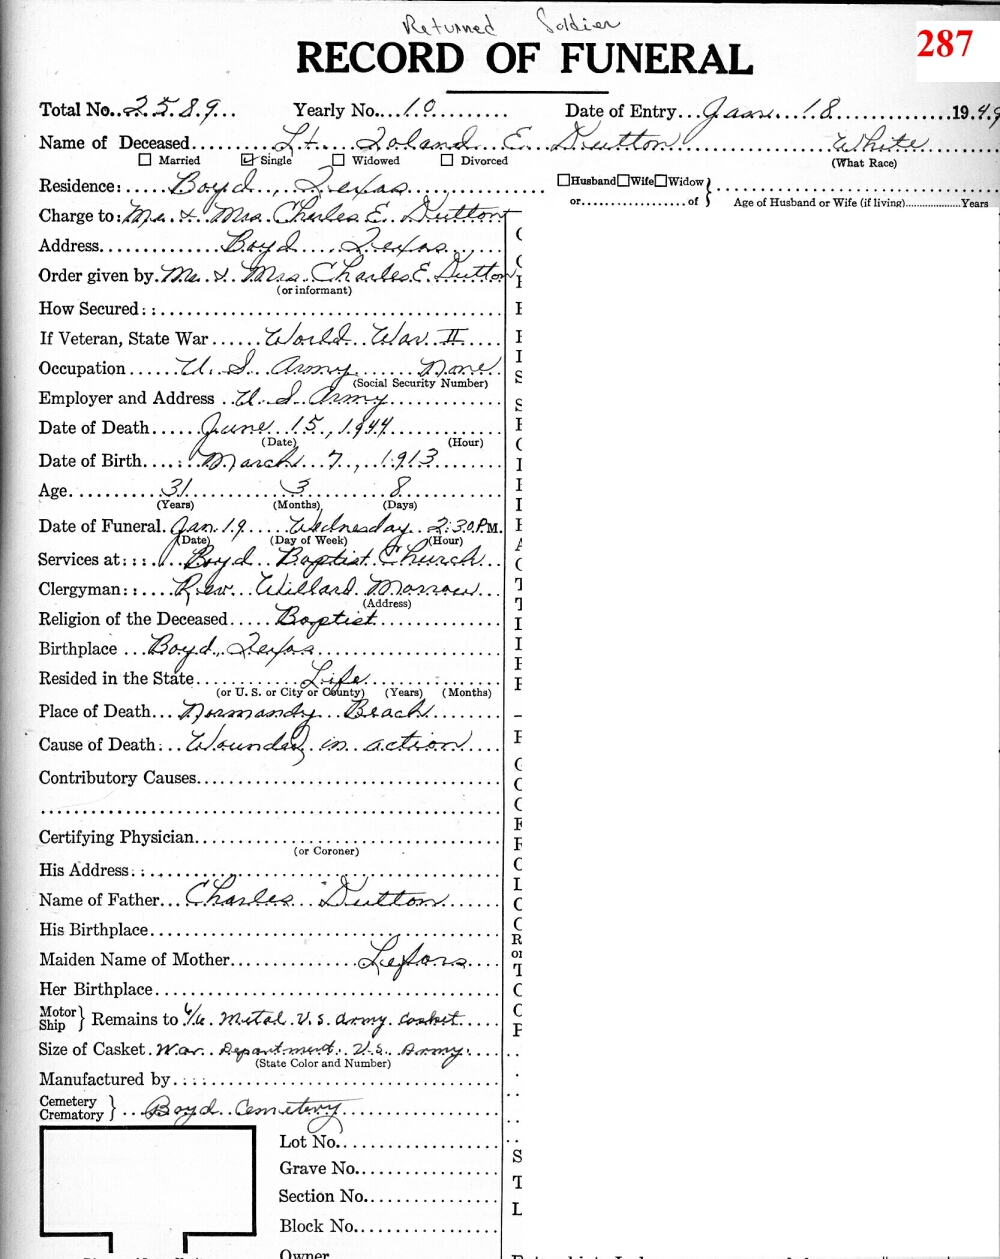 Returned Soldier
287
RECORD OF FUNERAL
Total No. 2589 Yearly No. 10 Date of Entry Jan. 18 1949
Name of Deceased Lt. Toland E. Dutton White
☐ Married ☑ Single ☐ Widowed ☐ Divorced (What Race)
Residence: Boyd, Texas ☐Husband☐Wife☐Widow
or of Age of Husband or Wife (if living) Years
Charge to: Mr. & Mrs. Charles E. Dutton
Address Boyd Texas
Order given by Mr. & Mrs. Charles E. Dutton
(or informant)
How Secured:
If Veteran, State War World War II
Occupation U. S. Army None
(Social Security Number)
Employer and Address U. S. Army
Date of Death June 15, 1944
(Date) (Hour)
Date of Birth March 7, 1913
Age 31 3 8
(Years) (Months) (Days)
Date of Funeral Jan. 19 Wednesday 2:30 P.M.
(Date) (Day of Week) (Hour)
Services at: Boyd Baptist Church
Clergyman: Rev. Willard Morrow
(Address)
Religion of the Deceased Baptist
Birthplace Boyd, Texas
Resided in the State Life
(or U. S. or City or County) (Years) (Months)
Place of Death Normandy Beach
Cause of Death: Wounded in action
Contributory Causes
Certifying Physician
(or Coroner)
His Address:
Name of Father Charles Dutton
His Birthplace
Maiden Name of Mother Lefors
Her Birthplace
Motor
Ship } Remains to 6/6 Metal U.S. Army Casket
Size of Casket War Department U.S. Army
(State Color and Number)
Manufactured by
Cemetery
Crematory } Boyd Cemetery
Lot No.
Grave No.
Section No.
Block No.
Owner